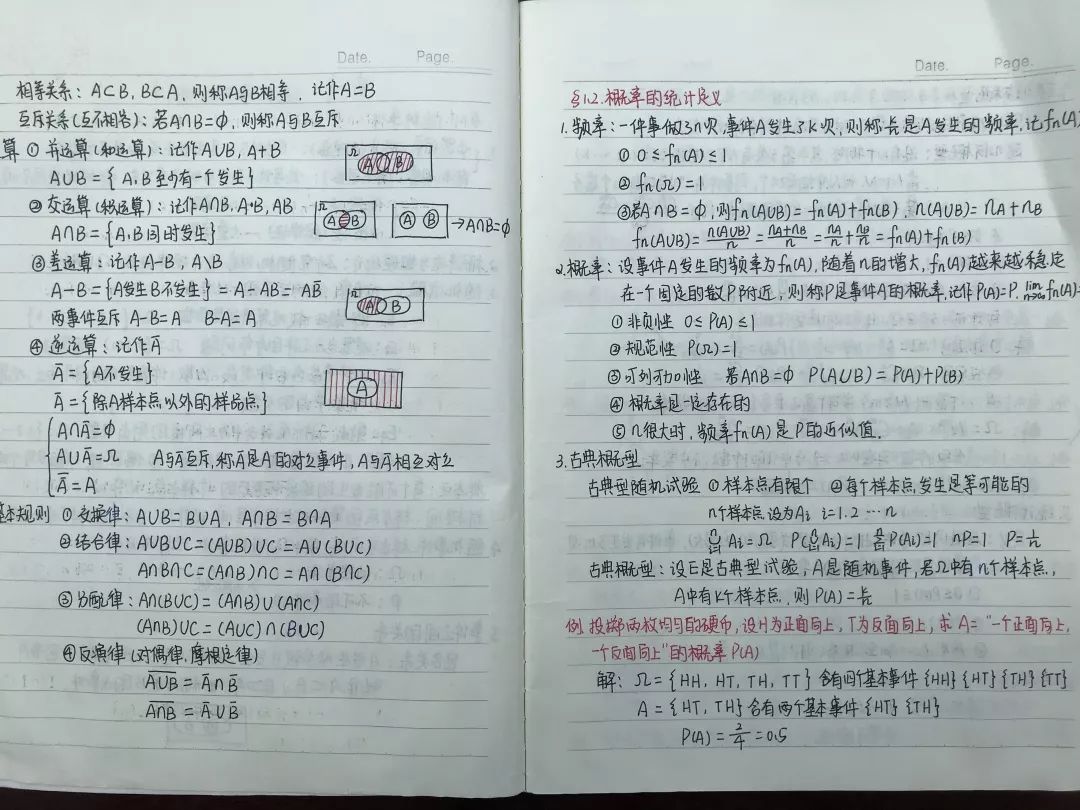 Date. Page.
相等关系：A⊂B，B⊂A，则称A与B相等，记作A=B
互斥关系(互不相容)：若A∩B=Φ，则称A与B互斥
算 ① 并运算(和运算)：记作A∪B，A+B
Ω A B
A∪B={A，B至少有一个发生}
② 交运算(积运算)：记作A∩B，A·B，AB
Ω A B A B →A∩B=Φ
A∩B={A，B同时发生}
③ 差运算：记作A-B，A\B
A-B={A发生B不发生}=A-AB=AB̅
Ω A B
两事件互斥 A-B=A B-A=A
④ 逆运算：记作A̅
A̅={A不发生}
A
A̅={除A样本点以外的样品点}
A∩A̅=Φ
A∪A̅=Ω A与A̅互斥，称A̅是A的对立事件，A与A̅相互对立
A̅=A
基本规则 ① 交换律：A∪B=B∪A，A∩B=B∩A
② 结合律：A∪B∪C=(A∪B)∪C=A∪(B∪C)
A∩B∩C=(A∩B)∩C=A∩(B∩C)
③ 分配律：A∩(B∪C)=(A∩B)∪(A∩C)
(A∩B)∪C=(A∪C)∩(B∪C)
④ 反演律(对偶律，摩根定律)
A∪B̅=A̅∩B̅
A∩B̅=A̅∪B̅
Date. Page.
§1.2.概率的统计定义
1.频率：一件事做了n次，事件A发生了k次，则称k/n是A发生的频率，记fn(A)
① 0≤fn(A)≤1
② fn(Ω)=1
③若A∩B=Φ，则fn(A∪B)=fn(A)+fn(B)，n(A∪B)=nA+nB
fn(A∪B)=n(A∪B)/n=nA+nB/n=nA/n+nB/n=fn(A)+fn(B)
2.概率：设事件A发生的频率为fn(A)，随着n的增大，fn(A)越来越稳定
在一个固定的数P附近，则称P是事件A的概率，记作P(A)=P. lim n→∞ fn(A)=
① 非负性 0≤P(A)≤1
② 规范性 P(Ω)=1
③ 可列可加性 若A∩B=Φ P(A∪B)=P(A)+P(B)
④ 概率是一定存在的
⑤ n很大时，频率fn(A)是P的近似值.
3.古典概型
古典型随机试验 ①样本点有限个 ②每个样本点发生是等可能的
n个样本点设为Ai i=1.2…n
∪Ai=Ω P(∪Ai)=1 ΣP(Ai)=1 nP=1 P=1/n
古典概型：设E是古典型试验，A是随机事件，若Ω中有n个样本点，
A中有k个样本点，则P(A)=k/n
例.投掷两枚均匀的硬币，设H为正面向上，T为反面向上，求A="一个正面向上，
一个反面向上"的概率P(A)
解：Ω={HH，HT，TH，TT}含有四个基本事件{HH}{HT}{TH}{TT}
A={HT，TH}含有两个基本事件{HT}{TH}
P(A)=2/4=0.5